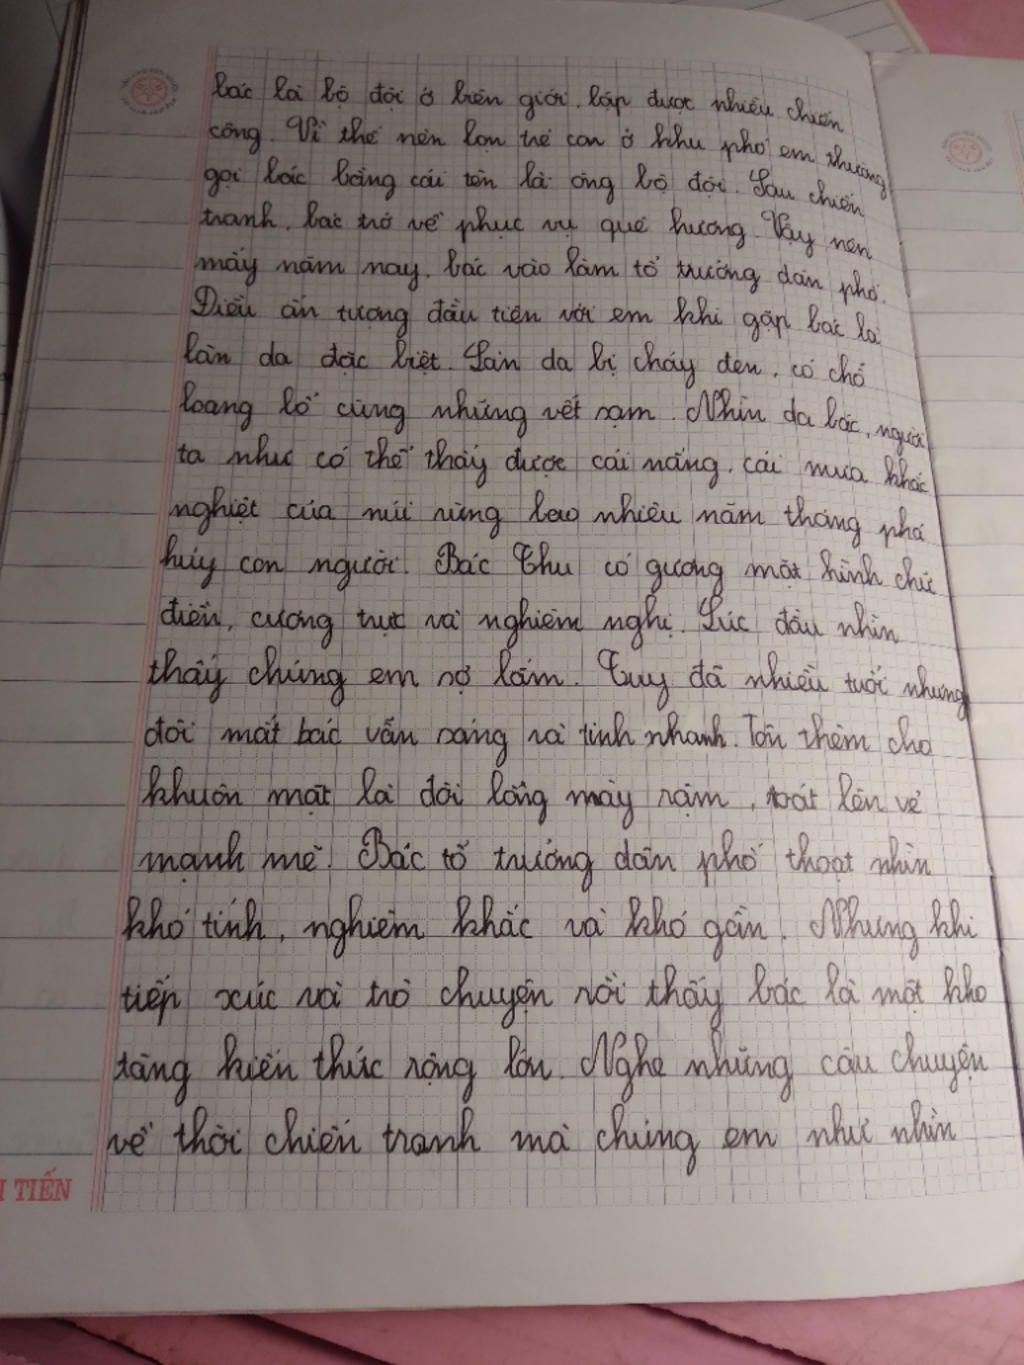 bác là bộ đội ở biên giới, lập được nhiều chiến
công. Vì thế nên bọn trẻ con ở khu phố em thường
gọi bác bằng cái tên là ông bộ đội. Sau chiến
tranh, bác trở về phục vụ quê hương. Vậy nên
mấy năm nay, bác vào làm tổ trưởng dân phố.
Điều ấn tượng đầu tiên với em khi gặp bác là
làn da đặc biệt. Làn da bị cháy đen, có chỗ
loang lổ cùng những vết sạm. Nhìn da bác, người
ta như có thể thấy được cái nắng, cái mưa khắc
nghiệt của núi rừng bao nhiêu năm tháng phá
hủy con người. Bác Thu có gương mặt hình chữ
điền, cương trực và nghiêm nghị. Lúc đầu nhìn
thấy chúng em sợ lắm. Tuy đã nhiều tuổi nhưng
đôi mắt bác vẫn sáng và tinh nhanh. Tôn thêm cho
khuôn mặt là đôi lông mày rậm, toát lên vẻ
mạnh mẽ. Bác tổ trưởng dân phố thoạt nhìn
khó tính, nghiêm khắc và khó gần. Nhưng khi
tiếp xúc và trò chuyện rồi thấy bác là một kho
tàng kiến thức rộng lớn. Nghe những câu chuyện
về thời chiến tranh mà chúng em như nhìn
TIẾN